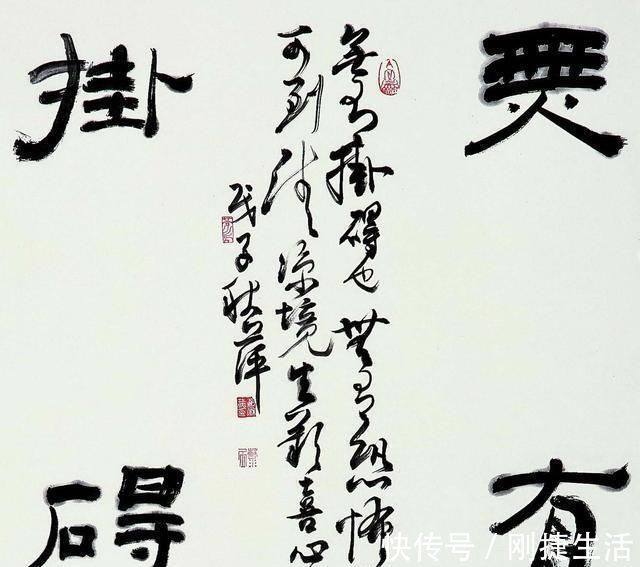 無有
掛碍
無有掛碍也無有恐怖
可到清涼境生歡喜心
戊子秋萍
快传号 / 刚捷生活